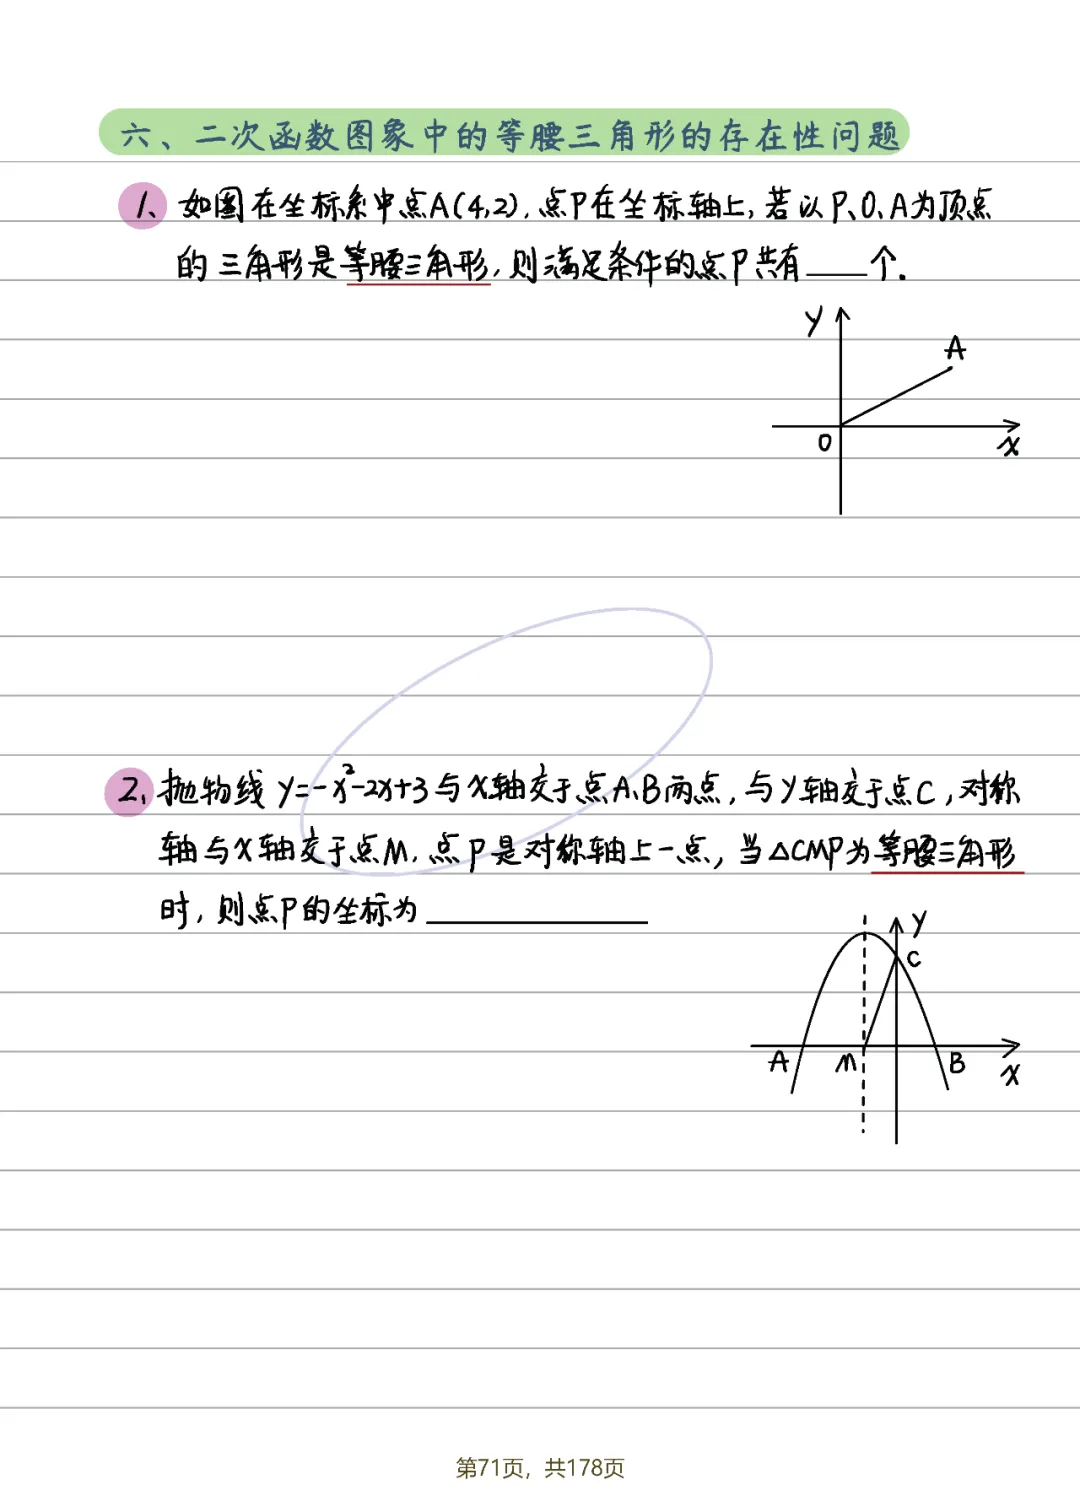 六、二次函数图象中的等腰三角形的存在性问题
1、如图在坐标系中点A(4,2),点P在坐标轴上,若以P、O、A为顶点
的三角形是等腰三角形,则满足条件的点P共有____个.
y
A
O
x
2、抛物线 y=-x²-2x+3与x轴交于点A、B两点,与y轴交于点C,对称
轴与x轴交于点M,点P是对称轴上一点,当△CMP为等腰三角形
时,则点P的坐标为____________
y
C
A M B x
第71页,共178页